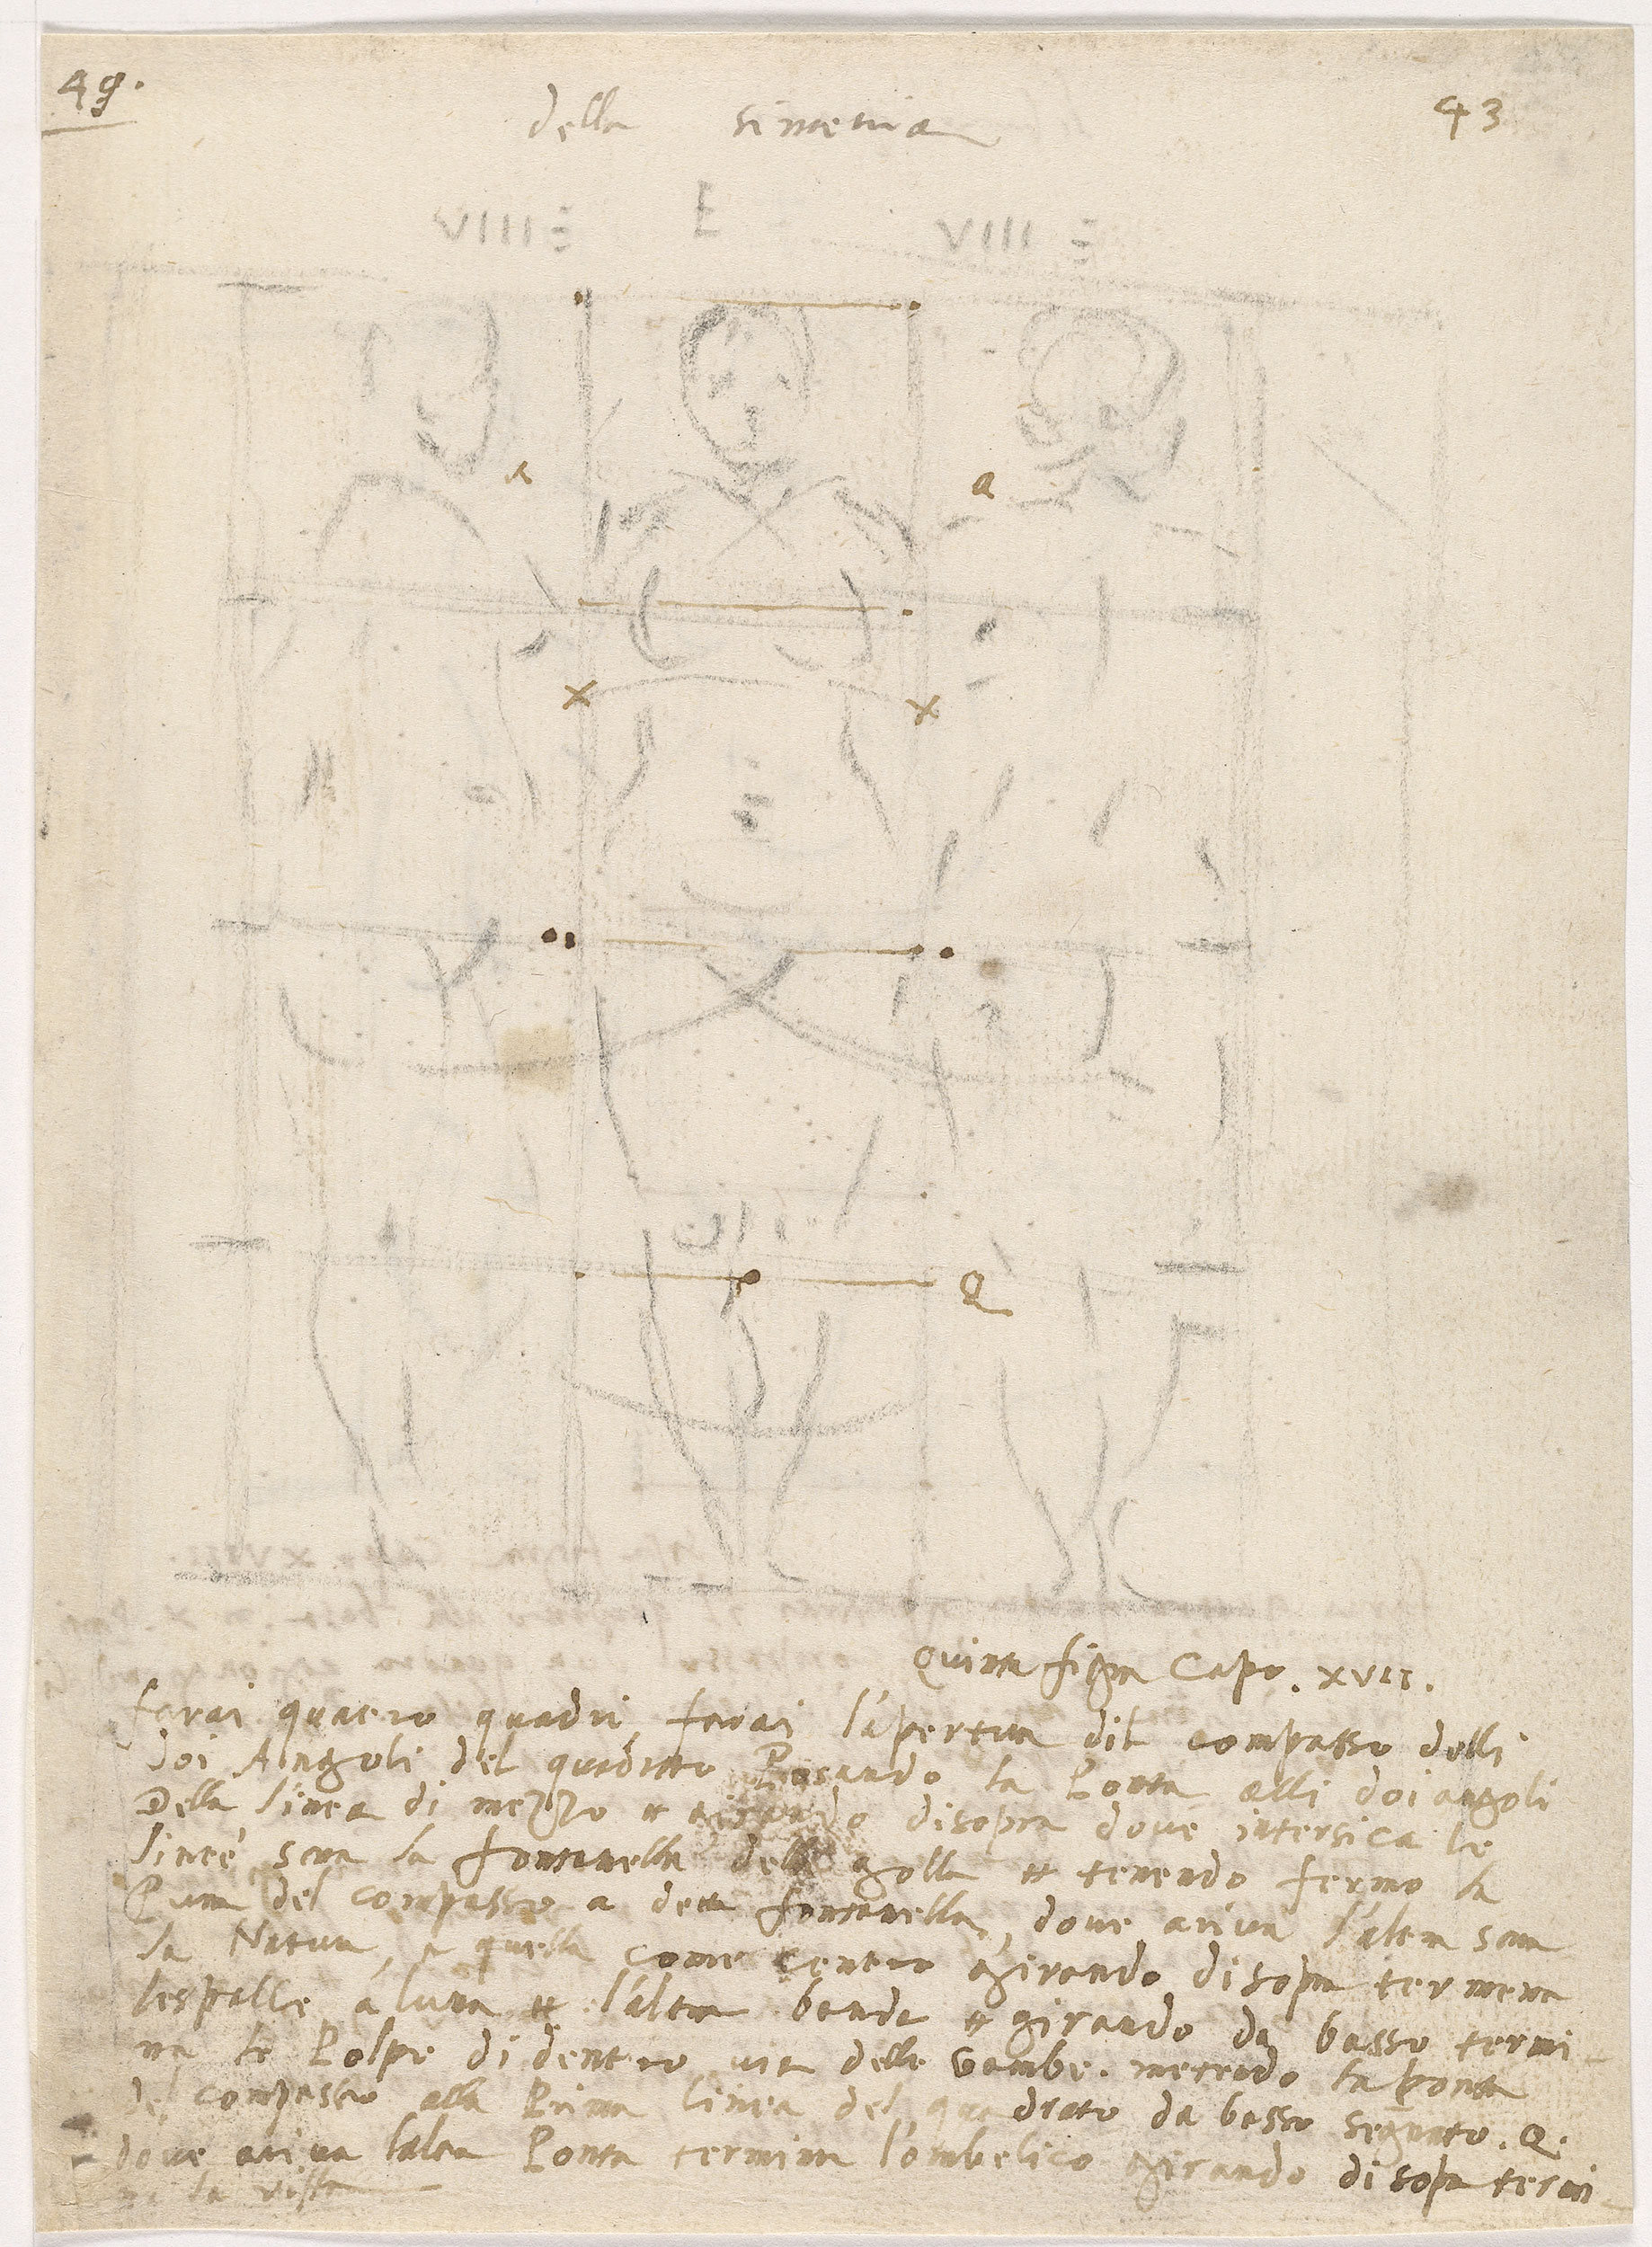 49.
della simetria
43
VIIII E VIIII
a a
x x
Q
Quinta figra Capo. XVII.
farai quatro quadri, farai l'apertura dil compasso delli
doi Angoli del quadrato Posando la Ponta alli doi angoli
Della linea di mezzo et girando disopra dove intersica le
linee sara la fontanella della golla et tenendo fermo la
Punta del compasso a detta fontanella, dove ariva l'altra sara
la Natura, a quella come centro girando disopra termena
lespalle a luna et l'altra banda et girando da basso termi
na le Polpe di dentro via delle Gambe. metendo la ponta
del compasso alla Prima linea del quadrato da basso segnato. Q.
dove ariva laltra Ponta termina l'ombelico girando disopra termi
na la vista